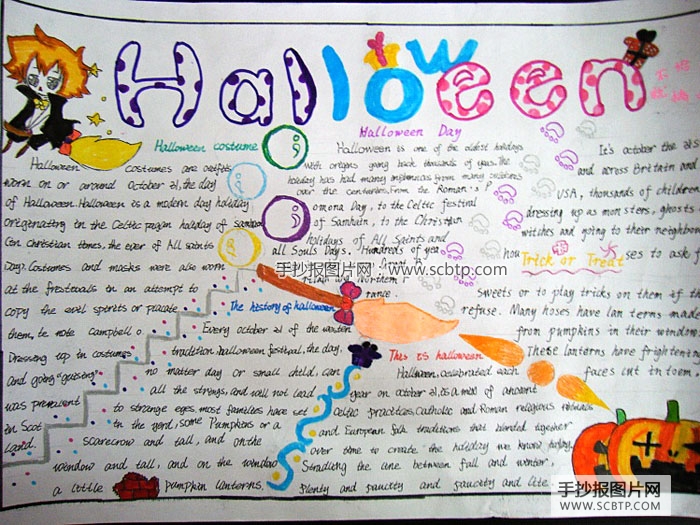 Halloween
Halloween costume
Halloween costumes are outfits
worn on or around October 31, the day
of Halloween. Halloween is a modern day holiday
originating in the Celtic pagan holiday of
Christian times, the eve of All saints
Day. Costumes and masks were also worn
at the festivals in an attempt to
copy the evil spirits or placate
them, te note Campbell o
Dressing up in costumes
and going "guising"
was prevalent
in Scot
land.
Halloween Day
Halloween is one of the oldest holidays
with origins going back thousands of years. The
holiday has had many influences from many cultures
over the centuries. From the Roman's P
omona Day, to the Celtic festival
of Samhain, to the Christian
holidays of All Saints and
all Souls Days. Hundreds of yea
Northern F
rance.
It's october the 31s
and across Britain and
USA, thousands of children
dressing up as monsters, ghosts
witches and going to their neighbour
hou Trick or Treat ses to ask f
Sweets or to play tricks on them if
refuse. Many hoses have lan terns made
from pumpkins in their window
These lanterns have frighteni
faces cut in toem.
The history of halloween
Every october 31 of the western
tradition, halloween festival, the day,
no matter day or small child, can
all the strings, and will not lead
to strange eyes. most families have set
in the yord, some Pumpkins or a
scarecrow and tall, and on the
window and tall, and on the window
a little pumpkin lanterns.
This is halloween
Halloween, celebrated each
year on october 31, is a mod of ancient
Celtic practices, Catholic and Roman religious rituals
and European folk traditions that blended together
over time to create the holiday we know today.
Stradling the line between fall and winter,
Plenty and paucity and paucity and life.
手抄报图片网 www.scbtp.com
手抄报图片网
WWW.SCBTP.COM